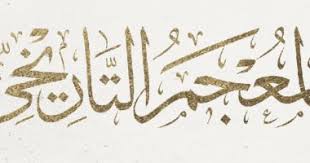 المُعْجَمُ التَّارِيخِيّ